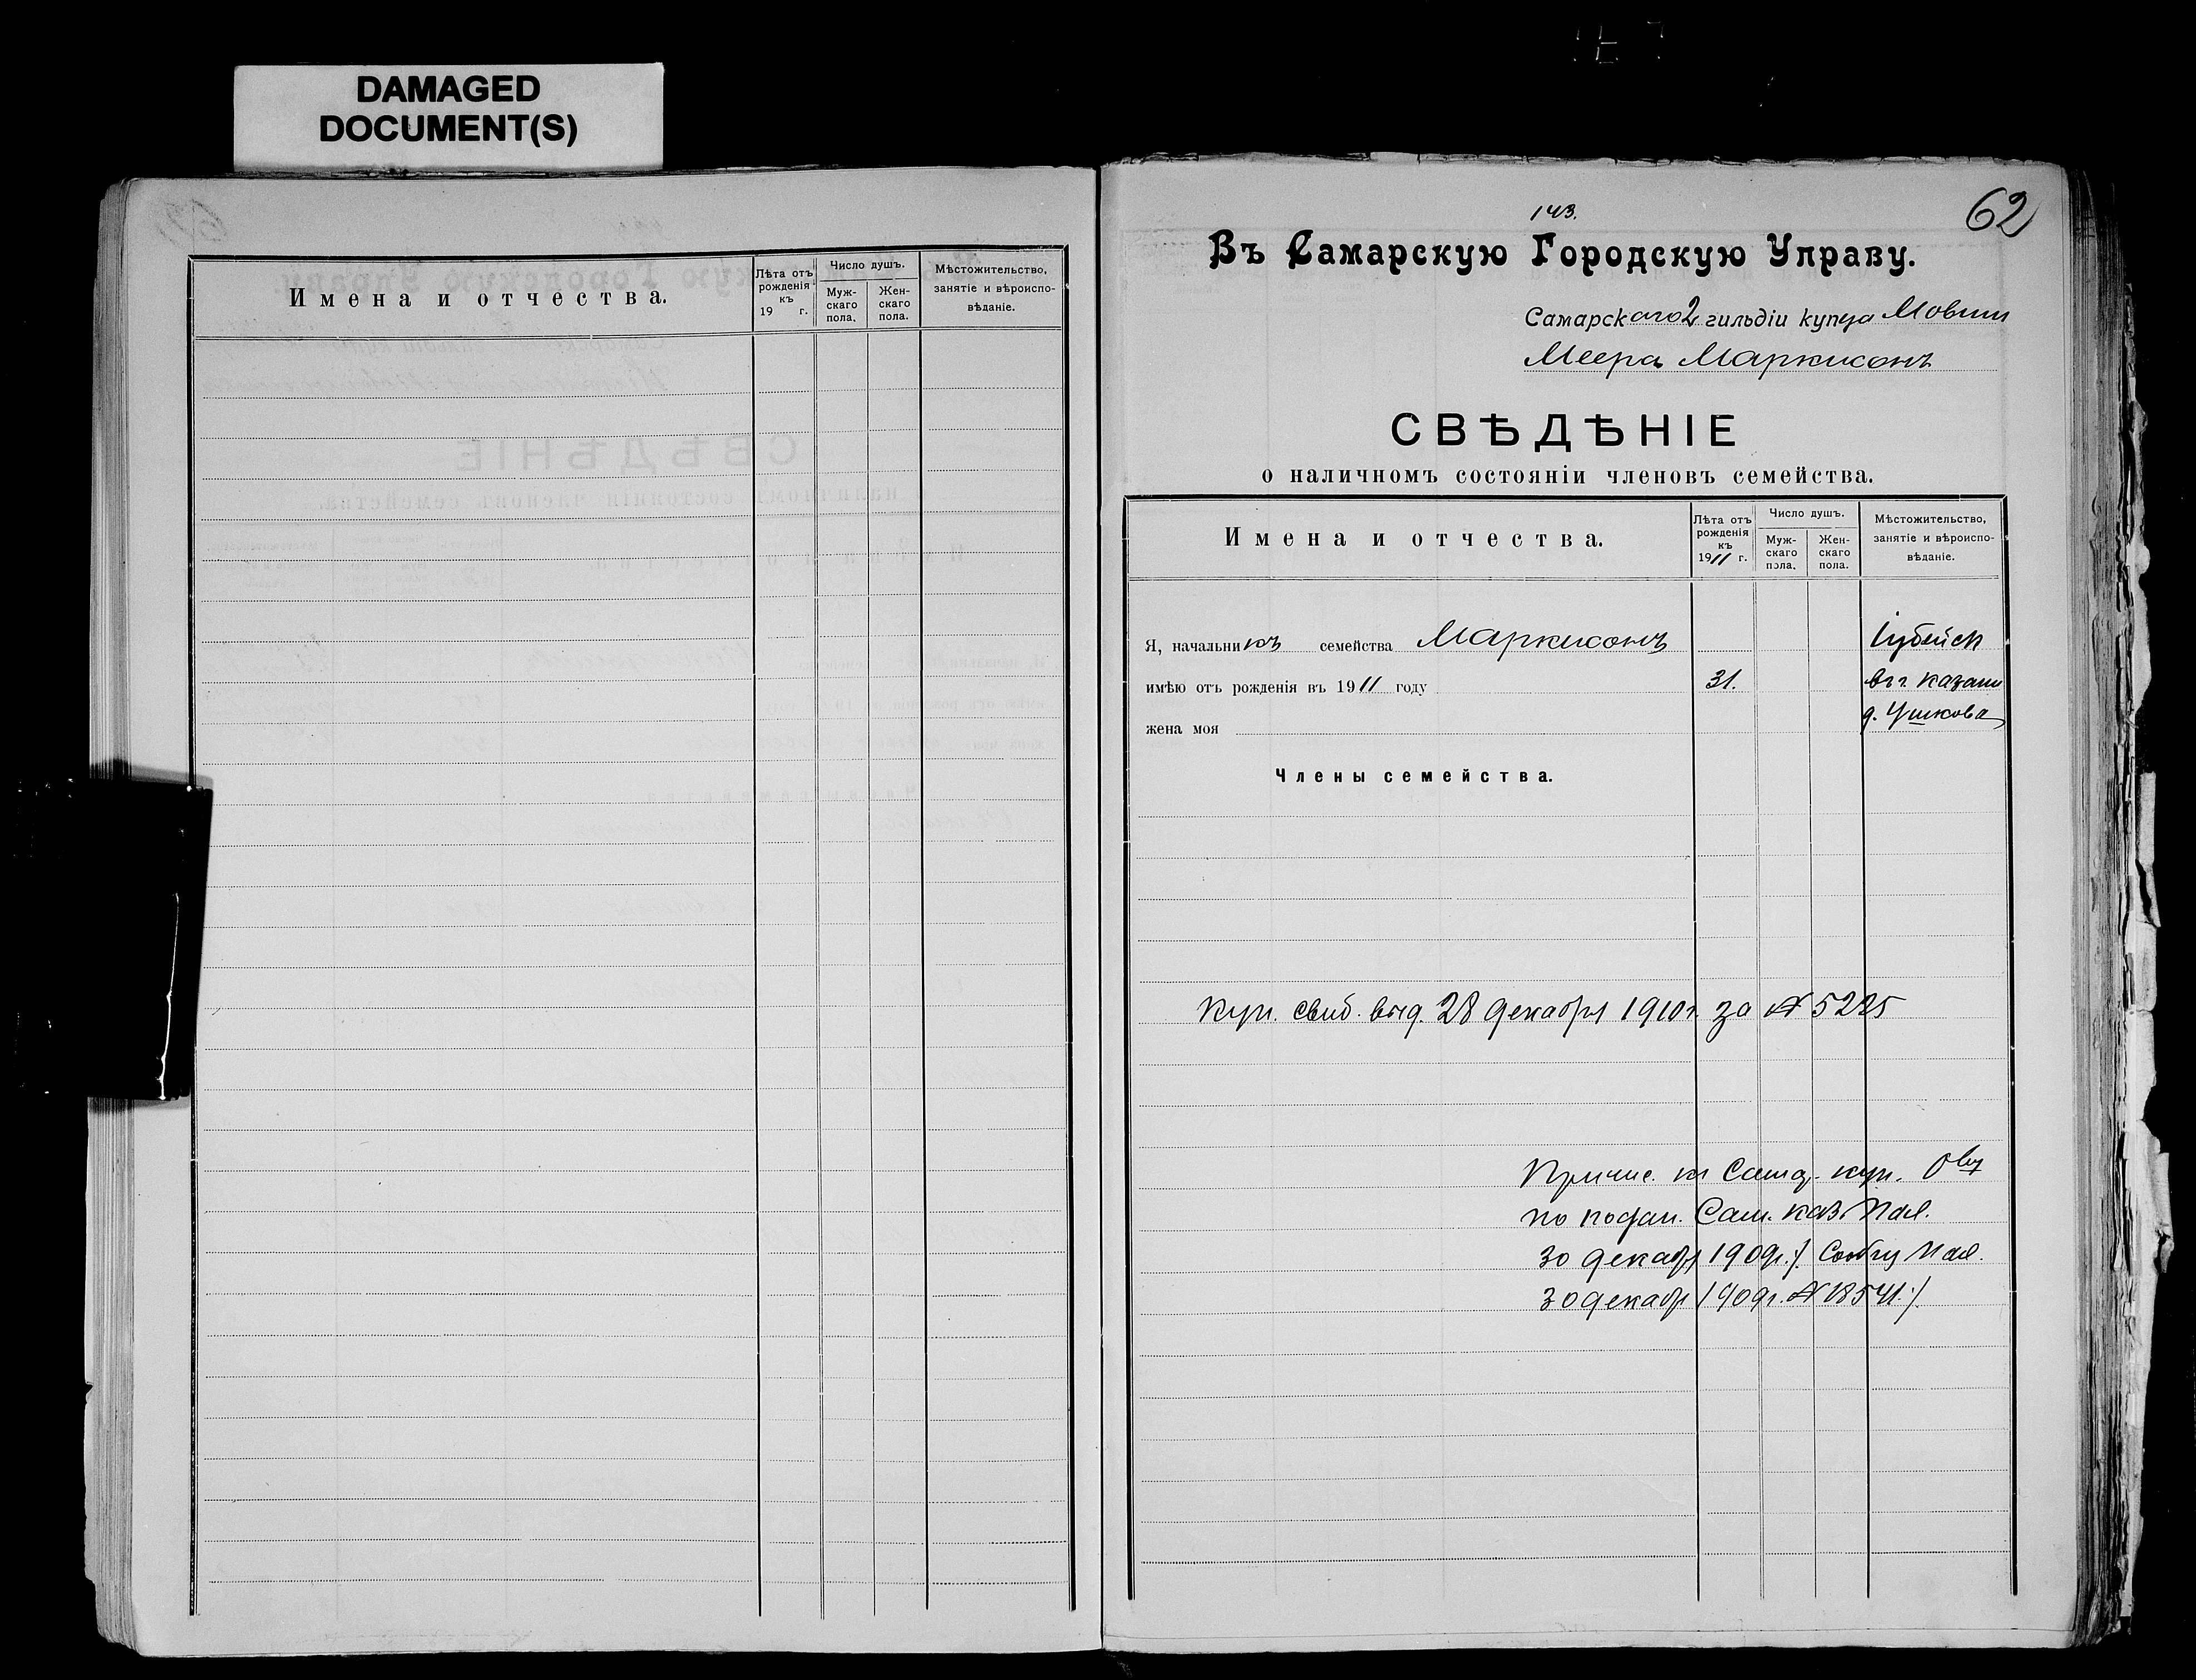 DAMAGED
DOCUMENT(S)
Имена и отчества.
Лѣта отъ рожденія къ 19 г.
Число душъ.
Мужскаго пола.
Женскаго пола.
Мѣстожительство, занятіе и вѣроисповѣданіе.
62
143.
Въ Самарскую Городскую Управу.
Самарскаго 2 гильдіи купца Мовши
Меера Маркисонъ
СВѢДѢНІЕ
о наличномъ состояніи членовъ семейства.
Имена и отчества.
Лѣта отъ рожденія къ 1911 г.
Число душъ.
Мужскаго пола.
Женскаго пола.
Мѣстожительство, занятіе и вѣроисповѣданіе.
Я, начальникъ семейства Маркисонъ
имѣю отъ рожденія въ 1911 году 31. въ г. Казани
д. Ушкова
жена моя
Члены семейства.
Куп. свид. выд. 28 декабря 1910 г. за № 5225
Причис. къ Самар. куп. О-ву
по Сам. каз. Пал.
30 декабр 1909 г. /. Пал.
30 декабр 1909 г. № 18541. /.